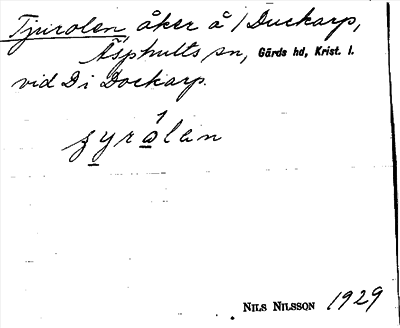 Tjurolen, åker å 1 Duckarp,
Äsphults sn, Gärds hd, Krist. l.
vid D i Dockarp.
ʒyrålen
NILS NILSSON 1929